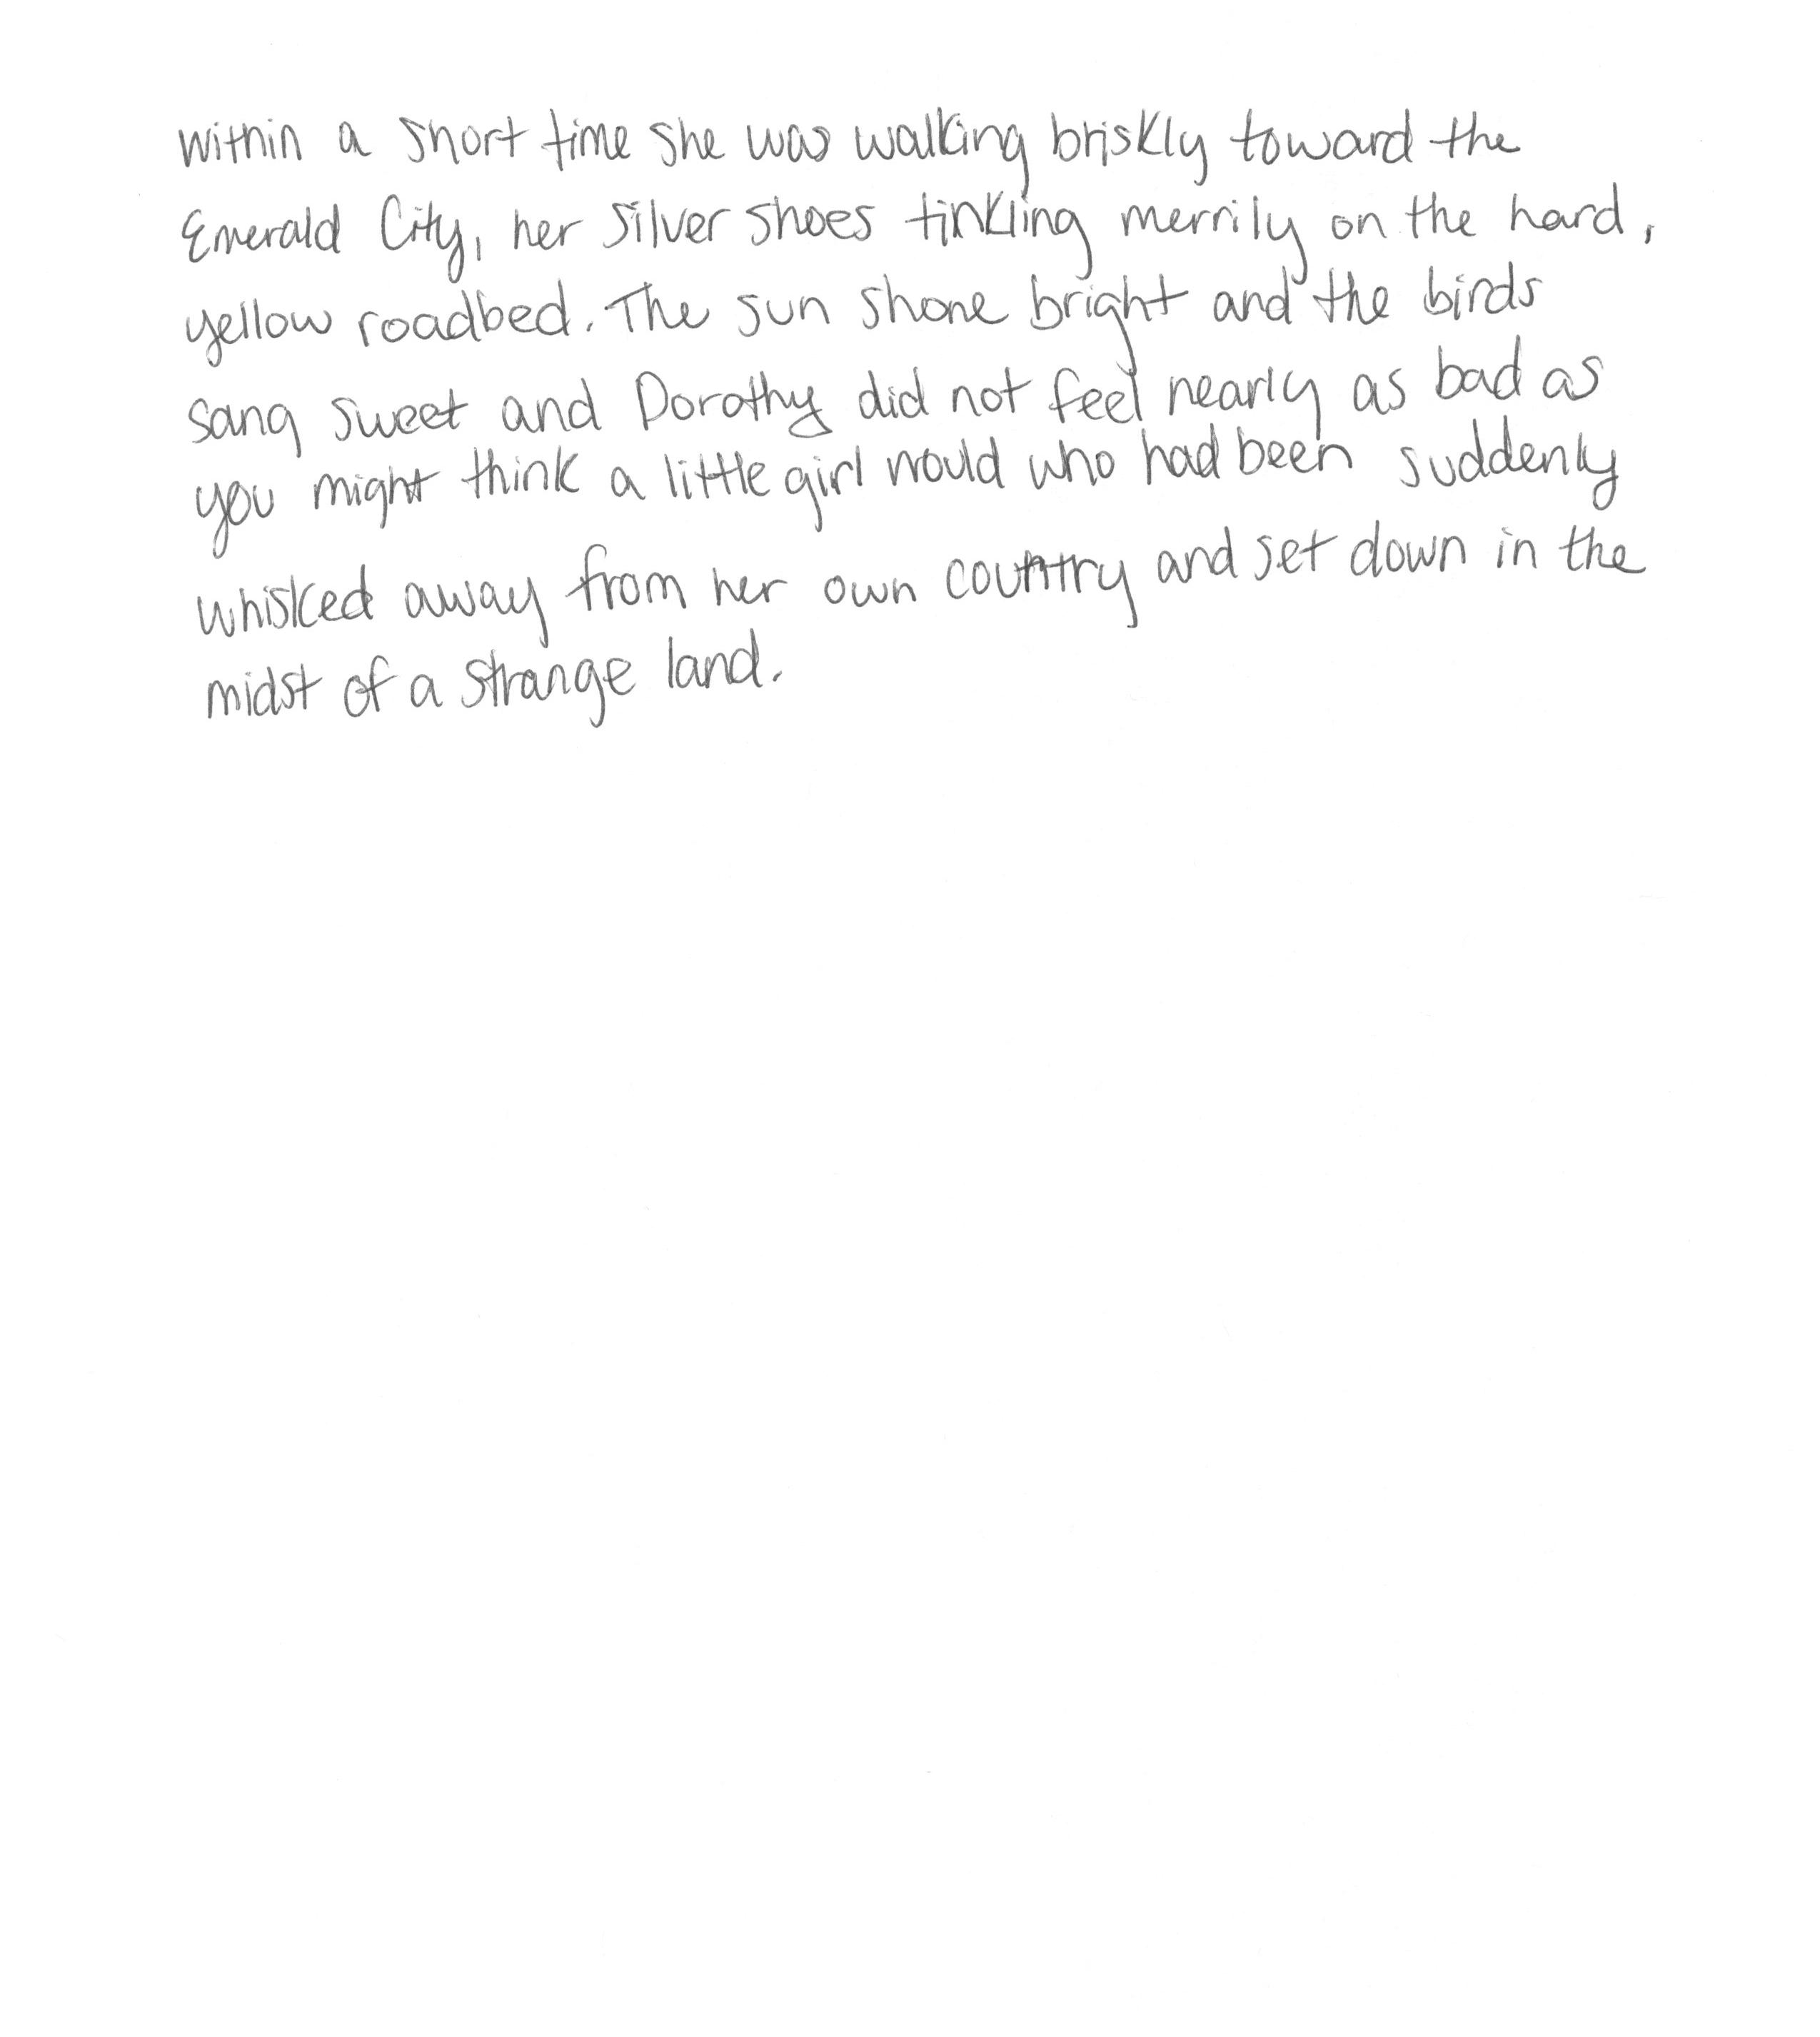 within a short time she was walking briskly toward the
Emerald City, her silver shoes tinkling merrily on the hard,
yellow roadbed. The sun shone bright and the birds
sang sweet and Dorothy did not feel nearly as bad as
you might think a little girl would who had been suddenly
whisked away from her own country and set down in the
midst of a strange land.